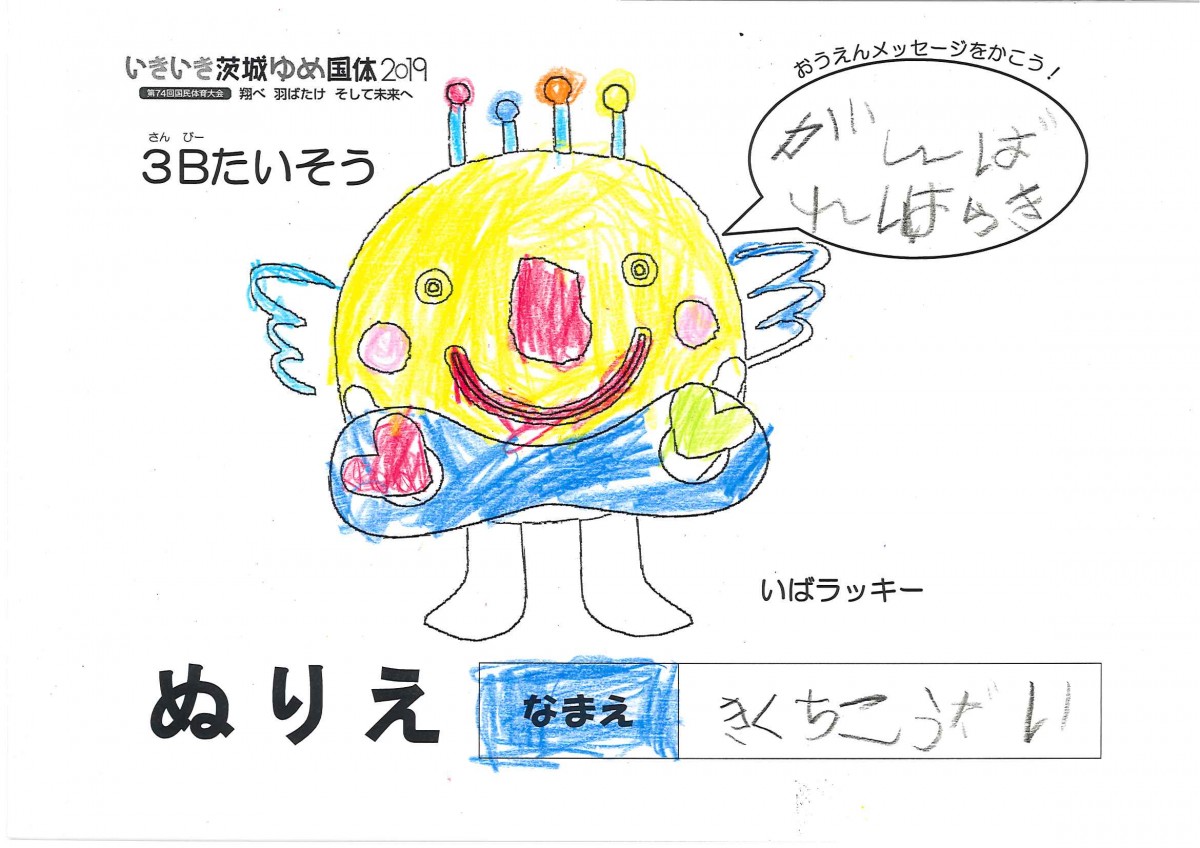 いきいき茨城ゆめ国体2019
第74回国民体育大会 翔べ 羽ばたけ そして未来へ
さん びー
3Bたいそう
おうえんメッセージをかこう!
がんば
れいばらき
いばラッキー
ぬりえ
なまえ きくちこうだい